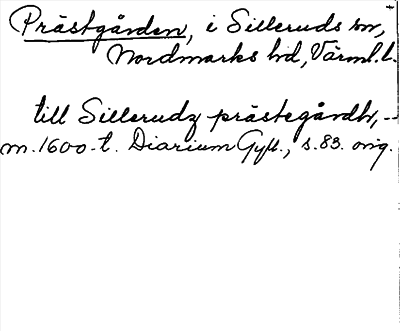 Prästgården, i Silleruds sn,
Nordmarks hd, Värml. l.
till Sillerudz prästegårdh, --
m. 1600-t. Diarium Gyll., s. 83. orig.